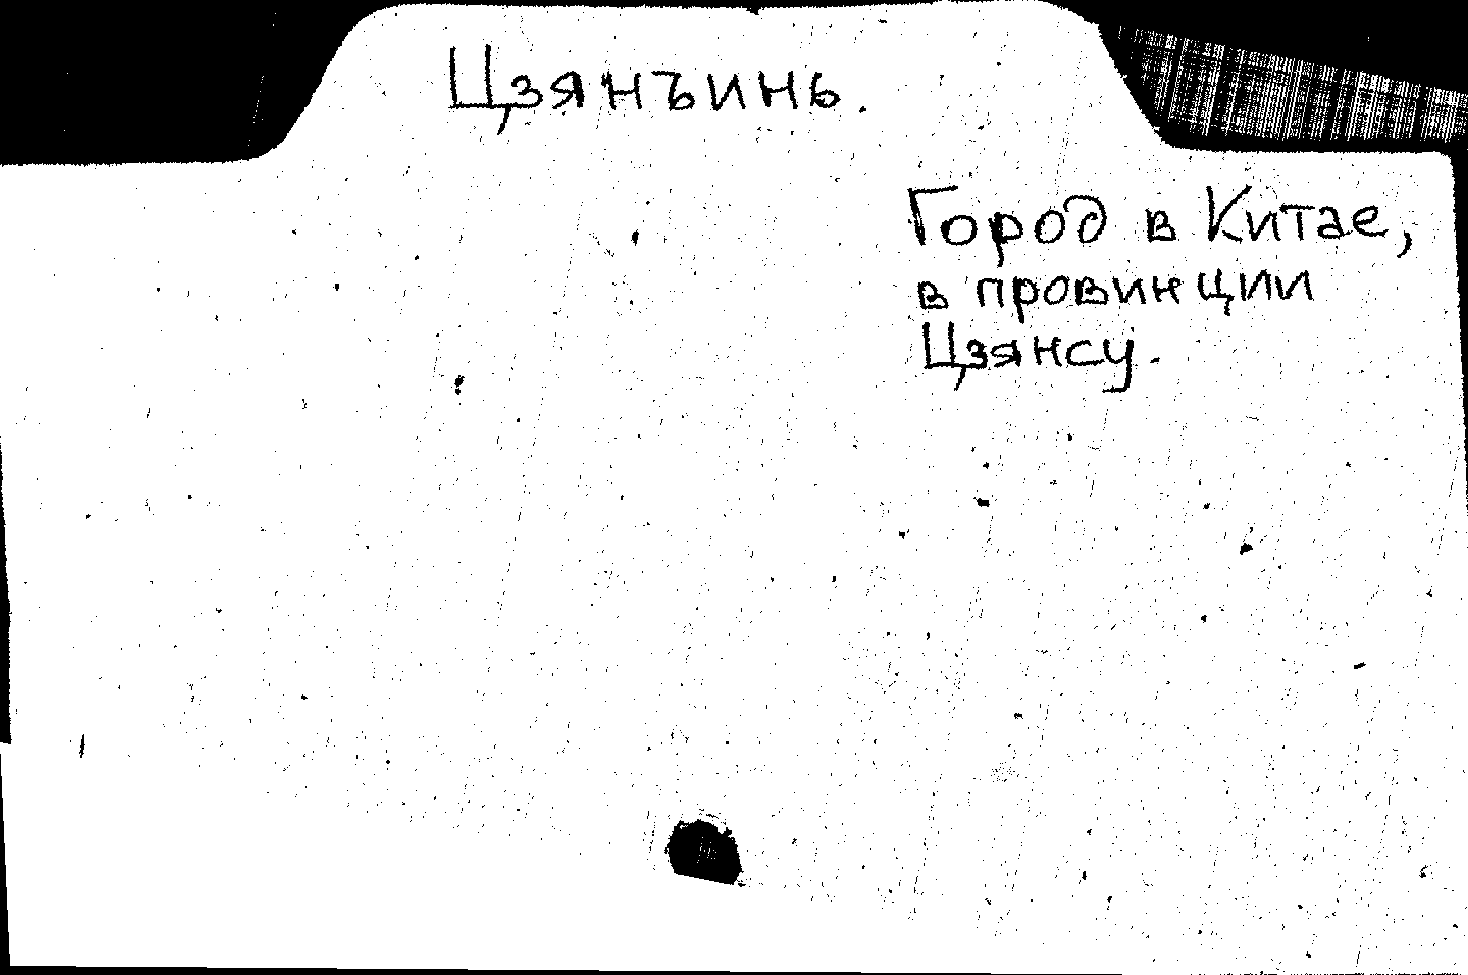 Цзянъинь.
Город в Китае,
в провинции
Цзянсу.